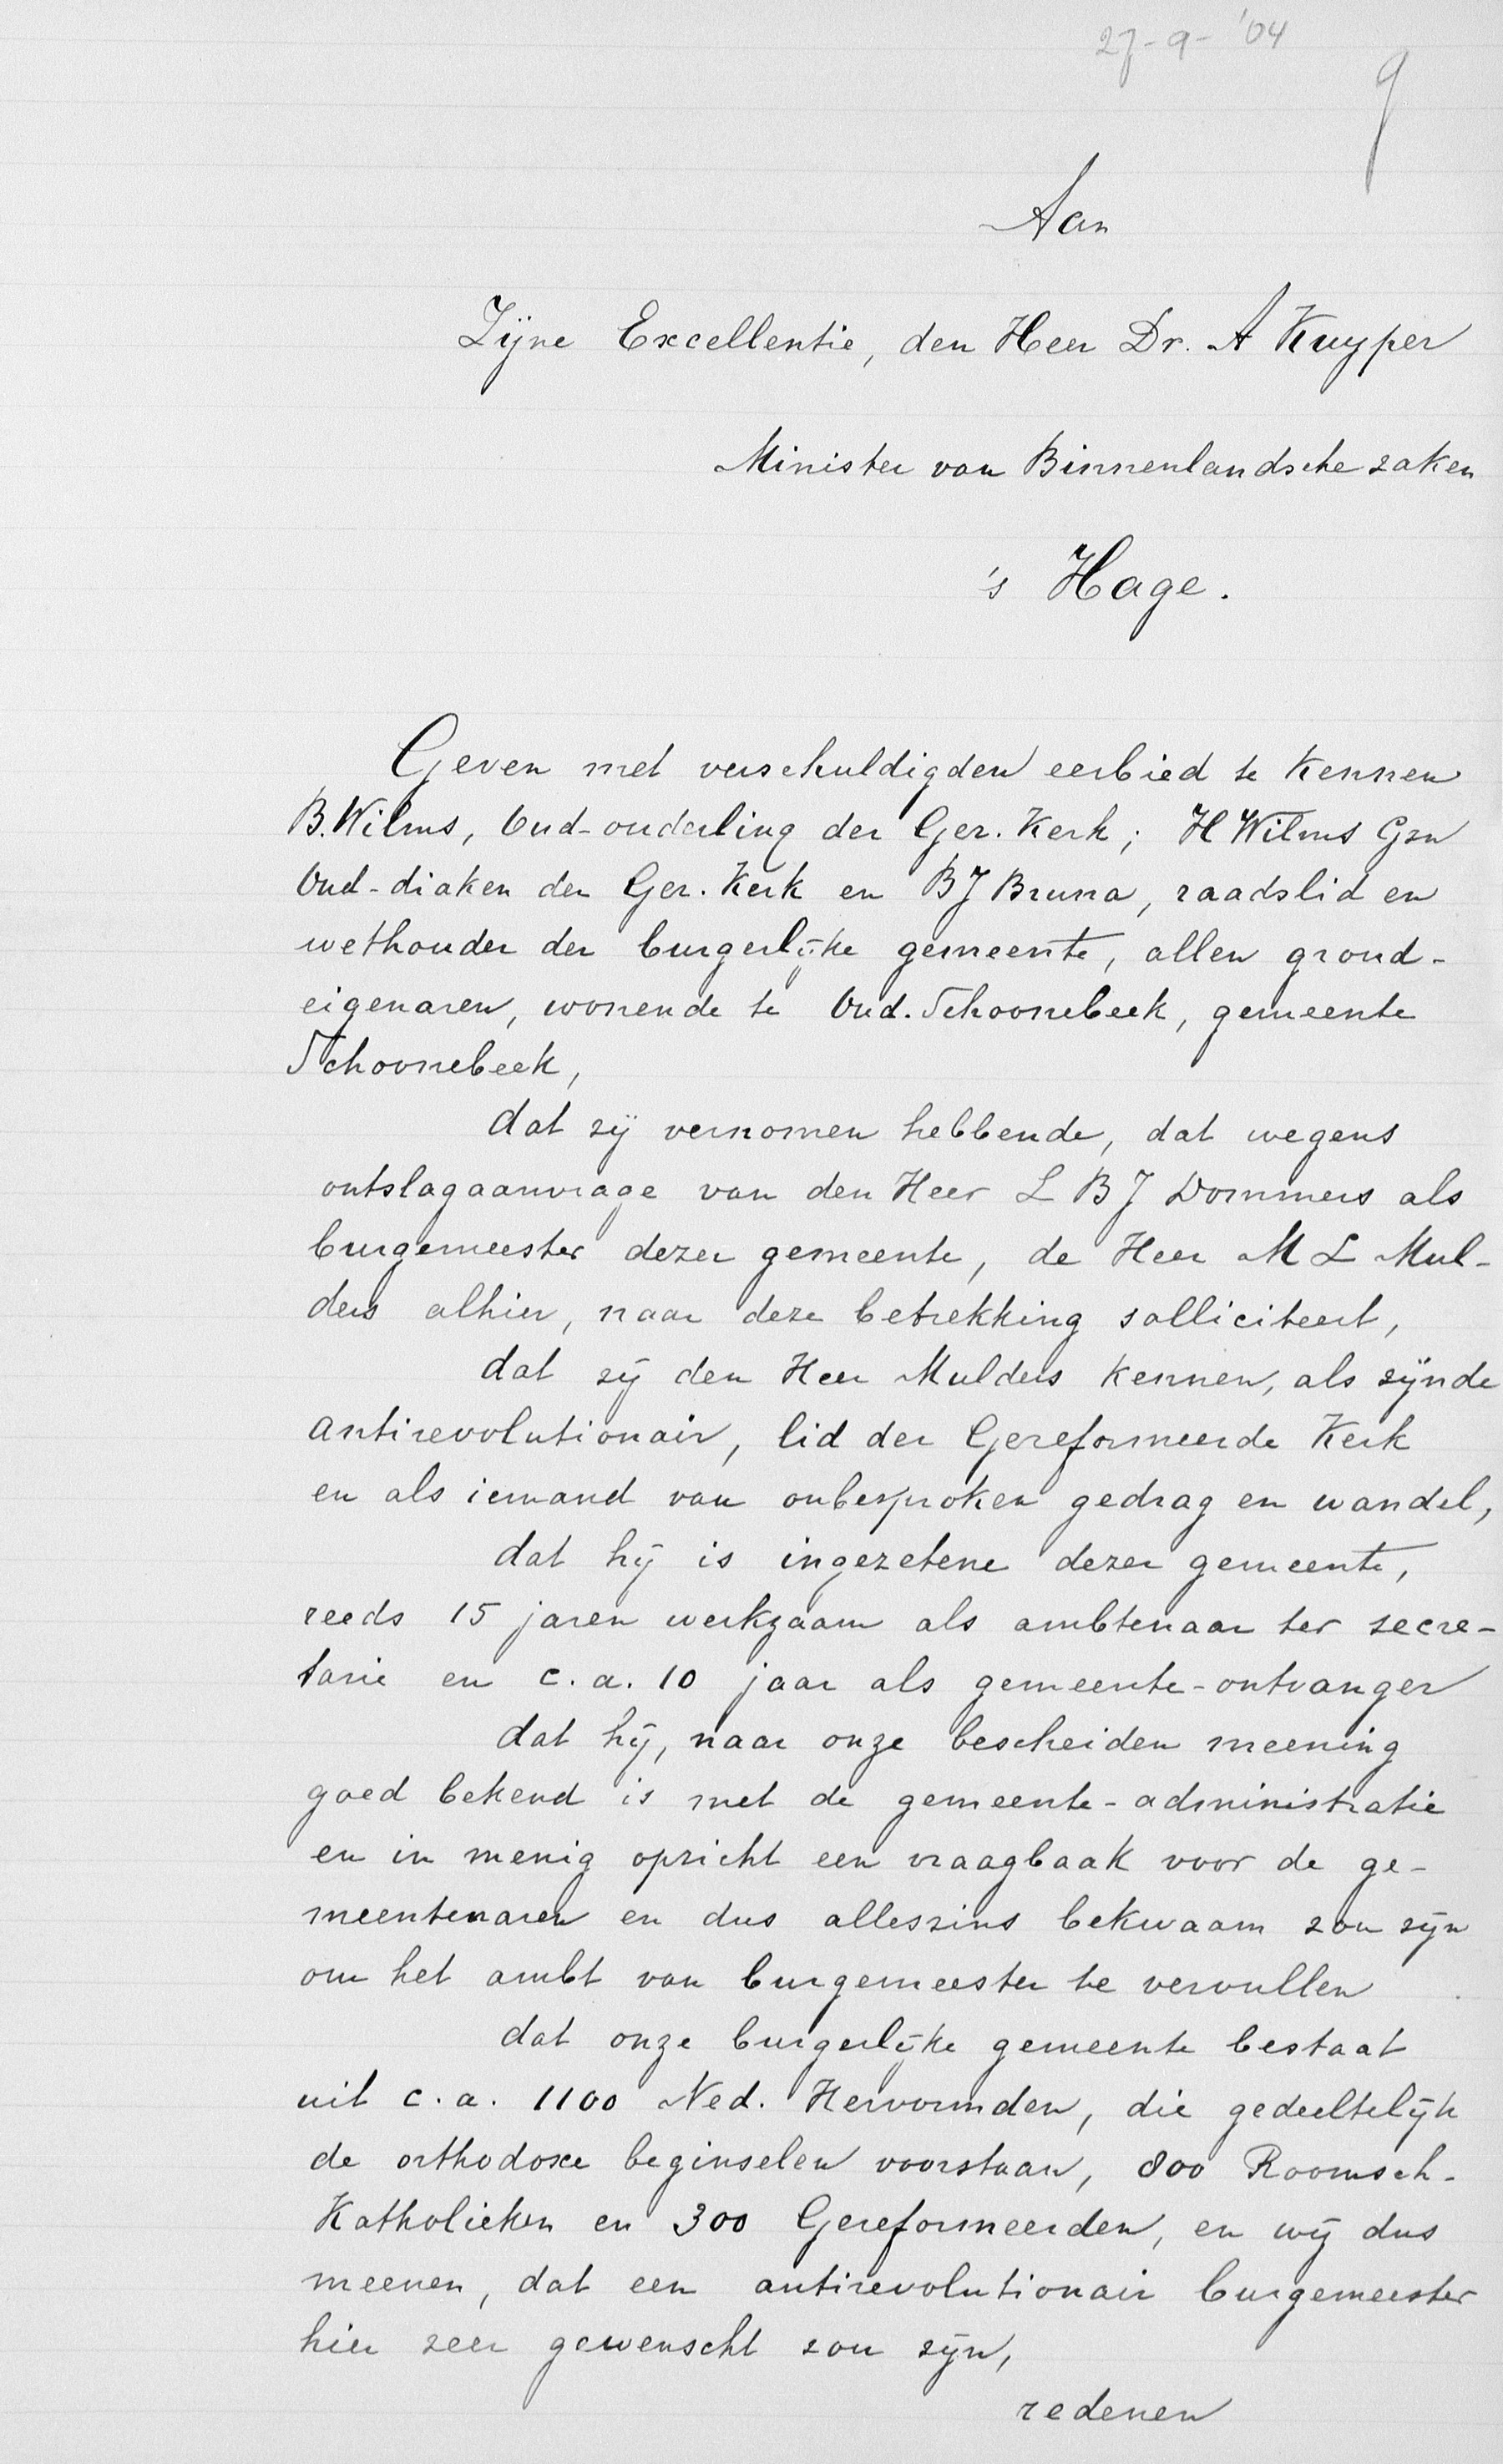 27-9-'04
9
Aan
Zijne Excellentie, den Heer Dr. A Kuyper
Minister van Binnenlandsche zaken
's Hage.
Geven met verschuldigden eerbied te kennen
B. Wilms, Oud-ouderling der Ger. Kerk; H Wilms Gzn
Oud-diaken der Ger. Kerk en B J Bruna, raadslid en
wethouder der burgerlijke gemeente, allen grond-
eigenaren, wonende te Oud. Schoonebeek, gemeente
Schoonebeek,
dat zij vernomen hebbende, dat wegens
ontslagaanvrage van den Heer L B J Dommers als
burgemeester dezer gemeente, de Heer M L Mul-
ders alhier, naar deze betrekking solliciteert,
dat zij den Heer Mulders kennen, als zijnde
antirevolutionair, lid der Gereformeerde Kerk
en als iemand van onbesproken gedrag en wandel,
dat hij is ingezetene dezer gemeente,
reeds 15 jaren werkzaam als ambtenaar ter secre-
tarie en c.a. 10 jaar als gemeente-ontvanger
dat hij, naar onze bescheiden meening
goed bekend is met de gemeente-administratie
en in menig opzicht een vraagbaak voor de ge-
meentenaren en dus alleszins bekwaam zou zijn
om het ambt van burgemeester te vervullen
dat onze burgerlijke gemeente bestaat
uit c.a. 1100 Ned. Hervormden, die gedeeltelijk
de orthodoxe beginselen voorstaan, 800 Roomsch-
Katholieken en 300 Gereformeerden, en wij dus
meenen, dat een antirevolutionair burgemeester
hier zeer gewenscht zou zijn,
redenen